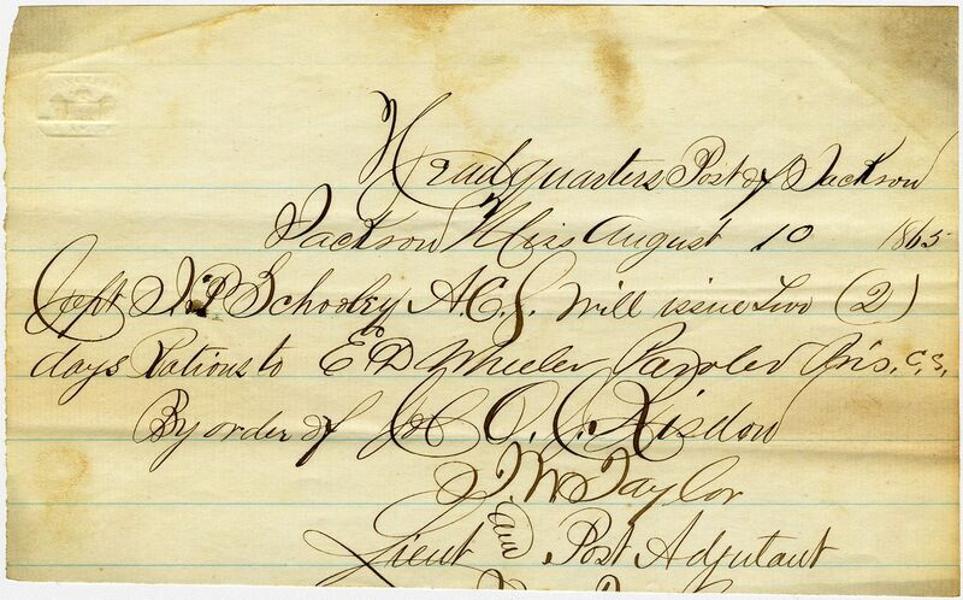 Headquarters Post of Jackson
Jackson Miss August 10 1865
Capt J. P. Schooley A.C.S. will issue two (2)
days Rations to E D Wheeler Paroled Pris. C.S.
By order of Col O. C. Risdon
J. W. Taylor
Lieut and Post Adjutant